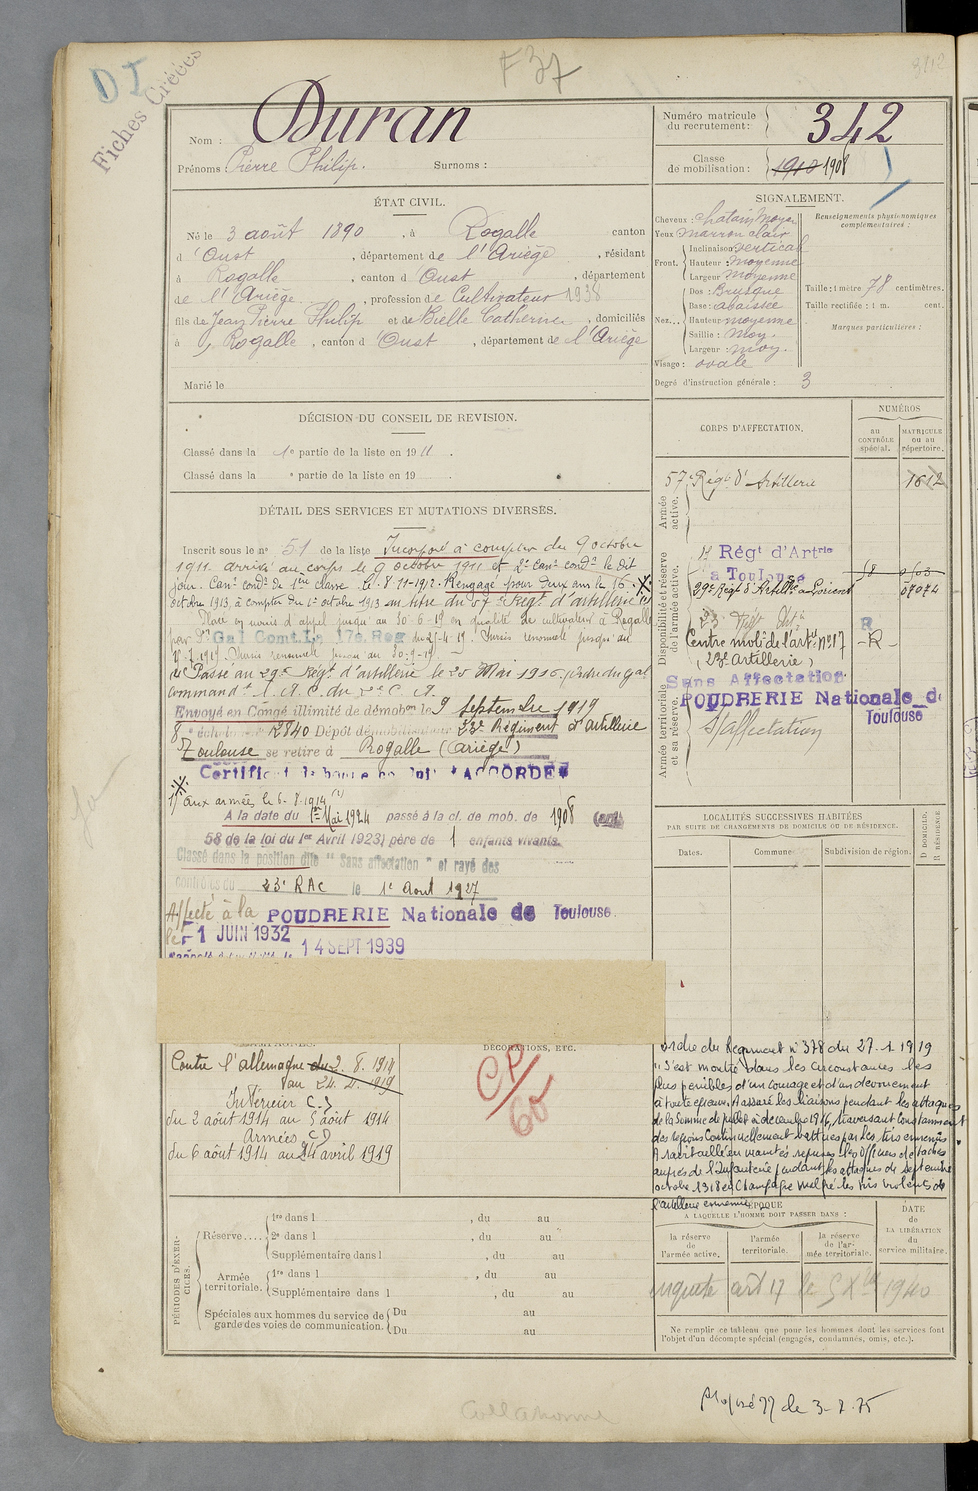 D I
Fiches Créées
F 37
342
Nom : Duran
Prénoms : Pierre Philip. Surnoms :
Numéro matricule du recrutement : 342
Classe de mobilisation : 1910 1908
ÉTAT CIVIL.
Né le 3 août 1890, à Rogalle canton
d'Oust, département de l'Ariège, résidant
à Rogalle, canton d'Oust, département
de l'Ariège, profession de Cultivateur 1938
fils de Jean Pierre Philip et de Bielle Catherine, domiciliés
à Rogalle, canton d'Oust, département de l'Ariège
Marié le
SIGNALEMENT.
Cheveux : chatain moyen
Yeux marron clair
Front. Inclinaison vertical
Hauteur : moyenne
Largeur moyenne
Nez... Dos : Brusque
Base : abaissée
Hauteur moyenne
Saillie : moy.
Largeur : moy.
Visage : ovale
Degré d'instruction générale : 3
Renseignements physionomiques complémentaires :
Taille : 1 mètre 78 centimètres.
Taille rectifiée : 1 m. cent.
Marques particulières :
DÉCISION DU CONSEIL DE REVISION.
Classé dans la 1e partie de la liste en 1911.
Classé dans la e partie de la liste en 19 .
DÉTAIL DES SERVICES ET MUTATIONS DIVERSES.
Inscrit sous le no 51 de la liste Incorporé à compter du 9 octobre
1911. arrivé au corps le 9 octobre 1911 et 2e Canr condr le dit
jour. Canr condr de 1ère classe le 8-11-1912. Rengagé pour deux ans le 16
octobre 1913, à compter du 1er octobre 1913 au titre du 57e Régt d'artillerie (1)
Placé en sursis d'appel jusqu'au 30-6-19 en qualité de cultivateur à Rogalle
par Gal Comt La 17e Reg du 21-4-19. Sursis renouvelé jusqu'au
Sursis renouvelé jusqu'au 30-9-19.
Passé au 29e Régt d'artillerie le 20 Mai 1916, ordre du Gal
commandt l'A.C. du 2e C.A.
Envoyé en Congé illimité de démobon le 9 septembre 1919
8e échelon no 2840 Dépôt démobilisateur 23e Régiment d'artillerie
Toulouse se retire à Rogalle (Ariège)
Certificat de bonne conduite "ACCORDÉ"
1) aux armées le 6-8-1914 (1)
A la date du 1er Mai 1924 passé à la cl. de mob. de 1908 (art.
58 de la loi du 1er Avril 1923) père de 1 enfants vivants.
Classé dans la position dite "Sans affectation" et rayé des
contrôles du 23e RAC le 1e Aout 1927
Affecté à la POUDRERIE Nationale de Toulouse.
le 1 JUIN 1932
14 SEPT 1939
CORPS D'AFFECTATION.
NUMÉROS
au CONTRÔLE spécial.
MATRICULE ou au répertoire.
Armée active.
57e Régt d'Artillerie 1612
Disponibilité et réserve de l'armée active.
Régt d'Artrie
a Toulouse
29e Régt d'Artillie à Lorient 07074
23e Régt Art
Centre mobe de l'arte no 17 R
(23e artillerie) -R-
Armée territoriale et sa réserve.
Sans Affectation
POUDRERIE Nationale de
Toulouse
S/affectation
LOCALITÉS SUCCESSIVES HABITÉES
PAR SUITE DE CHANGEMENTS DE DOMICILE OU DE RÉSIDENCE.
Dates. Commune Subdivision de région. D DOMICILE. R RÉSIDENCE.
CAMPAGNES.
Contre l'allemagne du 2. 8. 1914
au 24. 2. 1919
Intérieur C.S
du 2 août 1914 au 5 août 1914
Armées C.D
du 6 août 1914 au 24 avril 1919
DÉCORATIONS, ETC.
CP/60
ordre du Régiment no 378 du 27.1.1919
"S'est montré dans les circonstances les
plus pénibles d'un courage et d'un dévouement
à toute épreuve. A assuré les liaisons pendant les attaques
de la Somme de juillet à décembre 1916, traversant constamment
des régions continuellement battues par les tirs ennemis
A ravitaillé en maintes reprises les officiers détachés
auprès de l'Infanterie pendant les attaques de septembre
octobre 1918 en Champagne malgré les tirs violents de
l'artillerie ennemie
PÉRIODES D'EXERCICES.
Réserve.... 1re dans l , du au
2e dans l , du au
Supplémentaire dans l , du au
Armée territoriale. 1re dans l , du au
Supplémentaire dans l , du au
Spéciales aux hommes du service de garde des voies de communication. Du au
Du au
ÉPOQUE
A LAQUELLE L'HOMME DOIT PASSER DANS :
la réserve de l'armée active.
l'armée territoriale.
la réserve de l'armée territoriale.
DATE de LA LIBÉRATION du service militaire.
art 17 le 5 Xbre 1940
Ne remplir ce tableau que pour les hommes dont les services font
l'objet d'un décompte spécial (engagés, condamnés, omis, etc.).
de 3-7-75